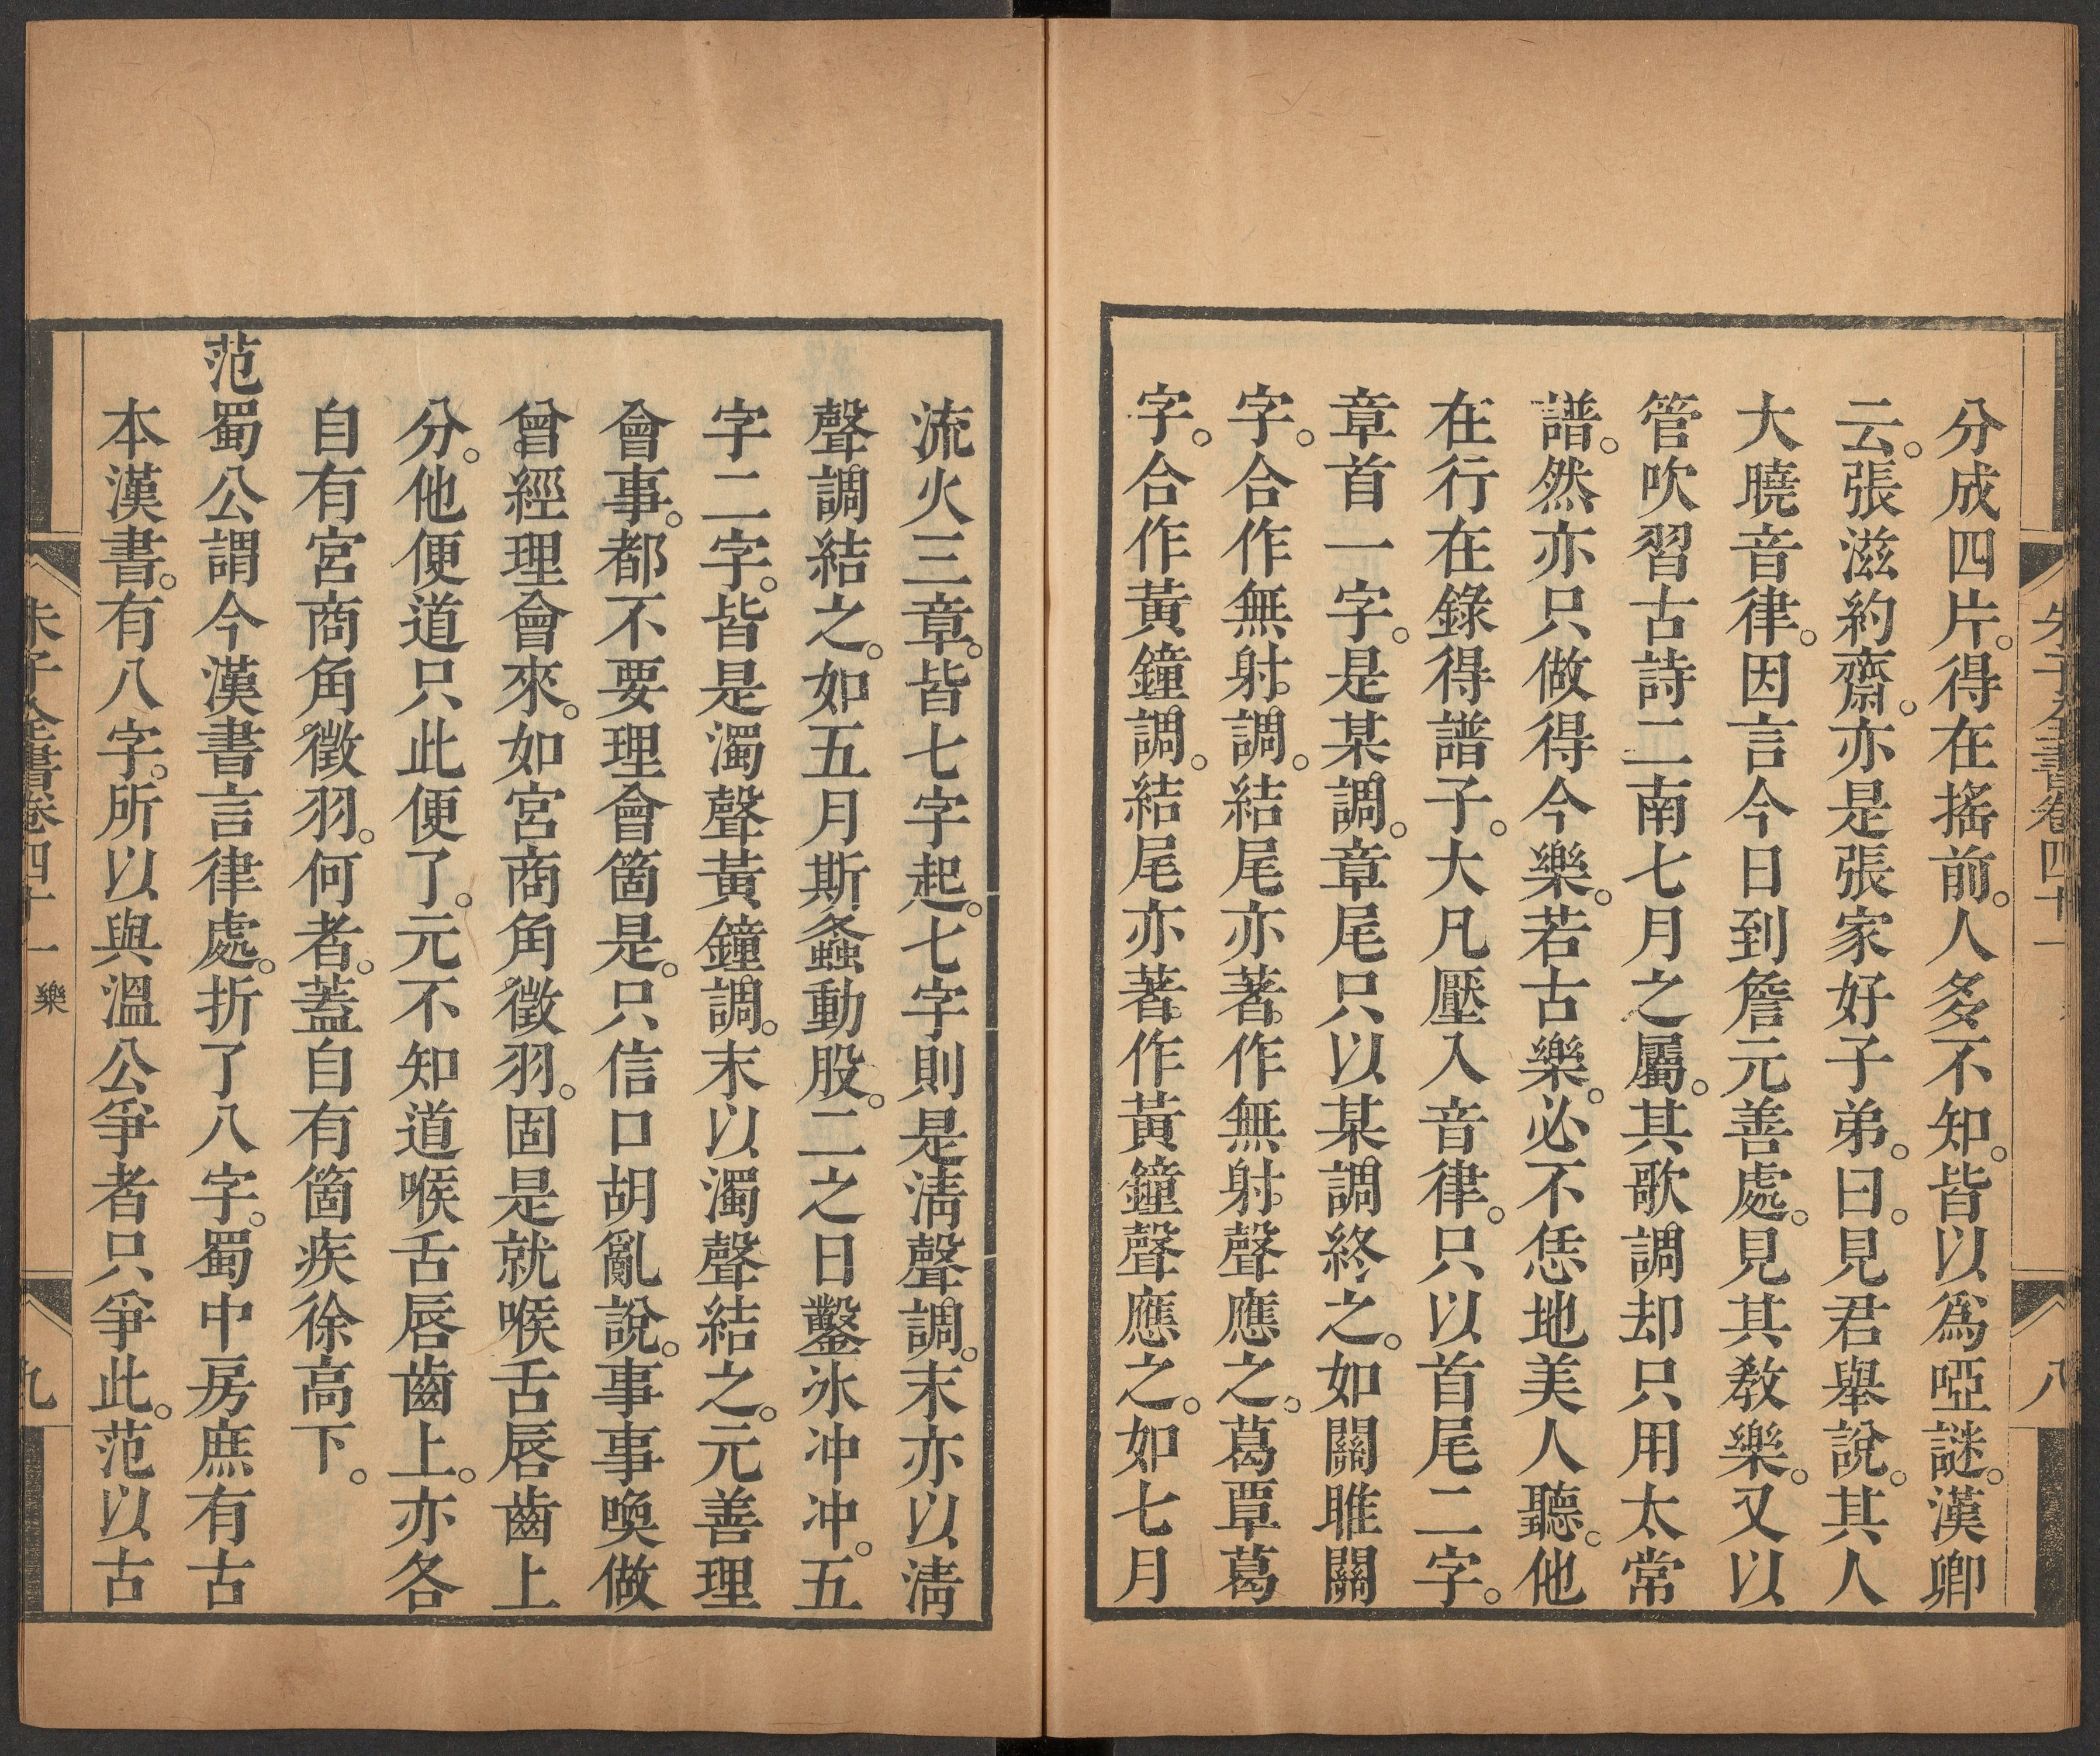 朱子全書卷四十一
八
分成四片。得在搖前。人多不知。皆以爲啞謎。漢卿
云。張滋約齋。亦是張家好子弟。曰。見君舉說。其人
大曉音律。因言今日到詹元善處。見其教樂。又以
管吹習古詩二南七月之屬。其歌調却只用太常
譜。然亦只做得今樂。若古樂。必不恁地美人聽。他
在行在錄得譜子。大凡壓入音律。只以首尾二字。
章首一字。是某調。章尾只以某調終之。如關雎關
字。合作無射調。結尾亦著作無射聲應之。葛覃葛
字。合作黃鐘調。結尾亦著作黃鐘聲應之。如七月
流火三章。皆七字起。七字則是淸聲調。末亦以淸
聲調結之。如五月斯螽動股。二之日鑿氷冲冲。五
字二字。皆是濁聲黃鐘調。末以濁聲結之。元善理
會事。都不要理會箇是。只信口胡亂說。事事喚做
曾經理會來。如宮商角徵羽。固是就喉舌唇齒上
分。他便道只此便了。元不知道喉舌唇齒上。亦各
自有宮商角徵羽。何者。蓋自有箇疾徐高下。
范蜀公謂今漢書言律處。折了八字。蜀中房庶有古
本漢書。有八字。所以與溫公爭者只爭此。范以古
朱子全書卷四十一 樂
九